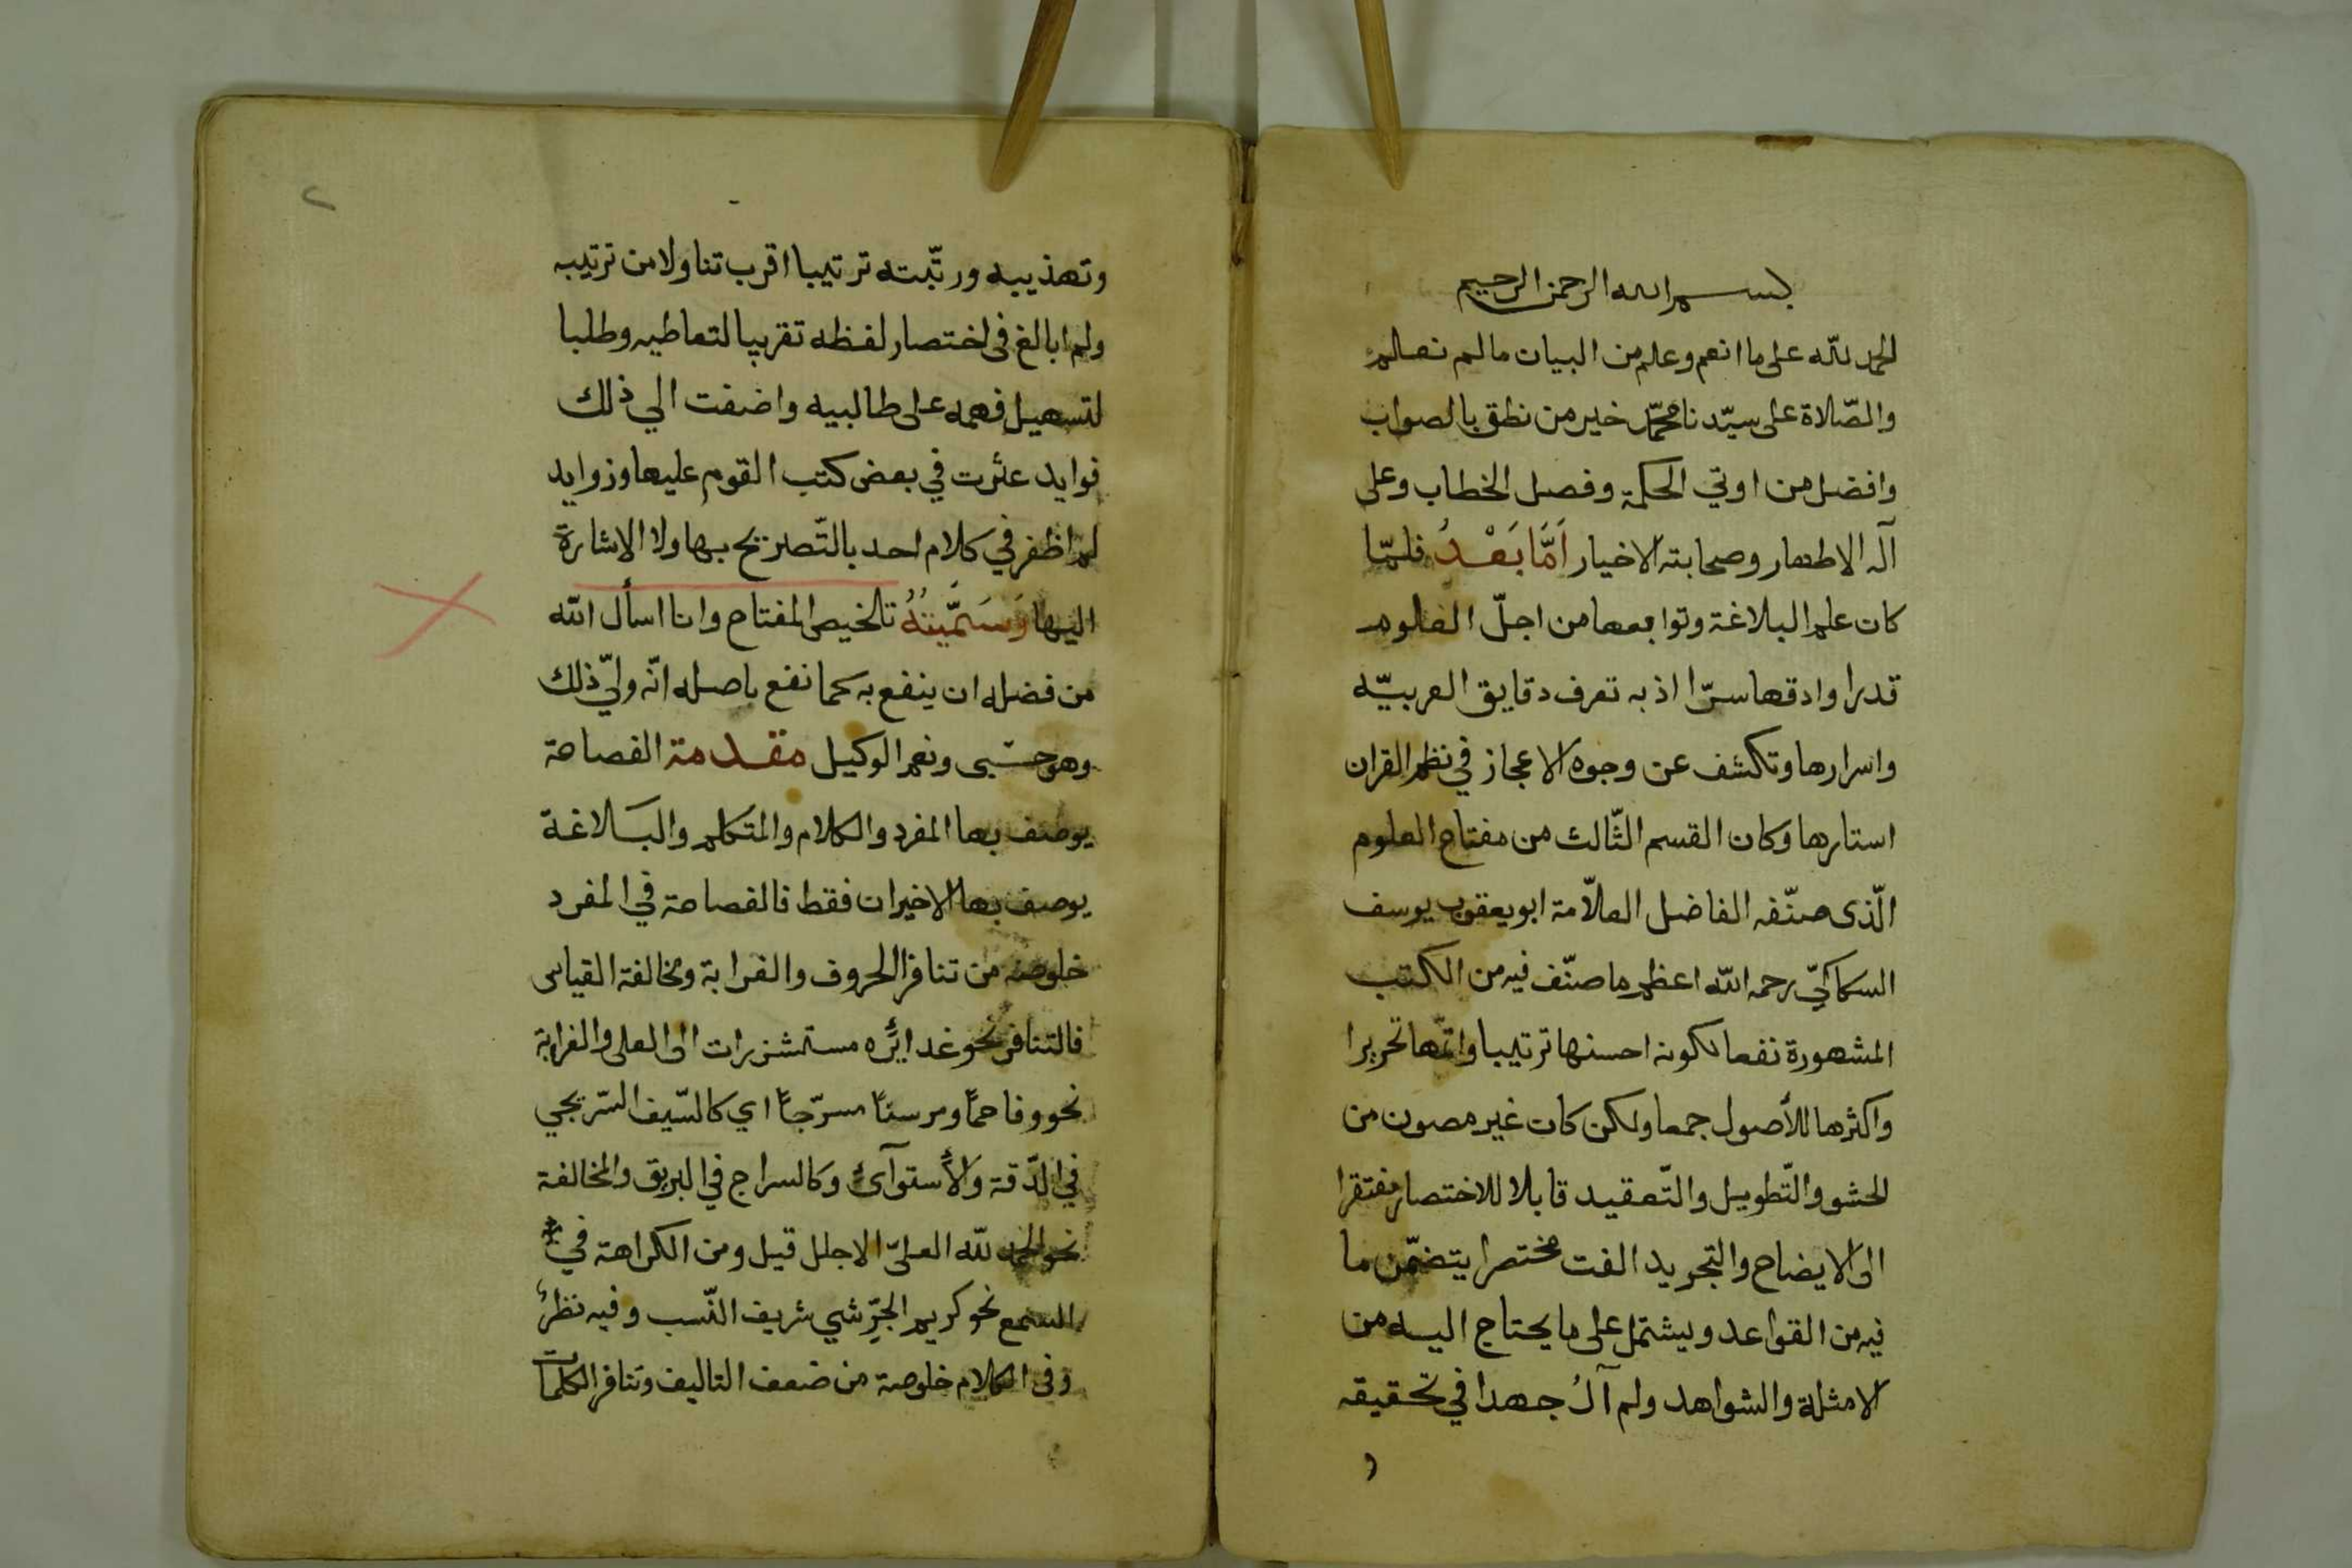 بسم الله الرحمن الرحيم
الحمد لله على ما انعم وعلم من البيان ما لم نعلم
والصّلاة على سيّدنا محمّد خير من نطق بالصواب
وافضل من اوتي الحكمة وفصل الخطاب وعلى
آله الاطهار وصحابته الاخيار اَمَّا بَعْدُ فلمّا
كان علم البلاغة وتوابعها من اجلّ العلوم
قدرا وادقها سرّا اذ به تعرف دقايق العربيّه
واسرارها وتكشف عن وجوه الاعجاز في نظم القران
استارها وكان القسم الثّالث من مفتاح العلوم
الّذى صنّفه الفاضل العلاّمة ابو يعقوب يوسف
السكاكيّ رحمه الله اعظم ما صنّف فيه من الكتب
المشهورة نفعا لكونه احسنها ترتيبا واتمّها تحريرا
واكثرها للأصول جمعا ولكن كان غير مصون من
الحشو والتّطويل والتّعقيد قابلا للاختصار مفتقرا
الى الايضاح والتجريد الفت مختصرا يتضمّن ما
فيه من القواعد ويشتمل على ما يحتاج اليه من
الامثلة والشواهد ولم آلُ جهدا في تحقيقه
و
٢
وتهذيبه ورتّبته ترتيبا اقرب تناولا من ترتيبه
ولم ابالغ فى اختصار لفظه تقريبا لتعاطيه وطلبا
لتسهيل فهمه على طالبيه واضفت الي ذلك
فوايد عثرت في بعض كتب القوم عليها وزوايد
لم اظفر في كلام احد بالتّصريح بها ولا الاشارة
اليها وَسَمَّيتُهُ تلخيص المفتاح وانا اسأل الله
من فضله ان ينفع به كما نفع باصله انّه وليّ ذلك
وهو حسبى ونعم الوكيل مقدمة الفصاحة
يوصف بها المفرد والكلام والمتكلم والبلاغة
يوصف بها الاخيران فقط فالفصاحة في المفرد
خلوصه من تنافر الحروف والغرابة ومخالفة القياس
فالتنافر نحو غدائره مستشزرات الى العلى والغرابة
نحو وفاحمًا ومرسنًا مسرّجًا اي كالسّيف السّريجي
في الدّقة والأستوآئ وكالسراج في البريق والمخالفة
نحو الحمد لله العليّ الاجلل قيل ومن الكراهة في
السمع نحو كريم الجِرِّشي شريف النّسب وفيه نظرٌ
وفى الكلام خلوصه من ضعف التاليف وتنافر الكلمات